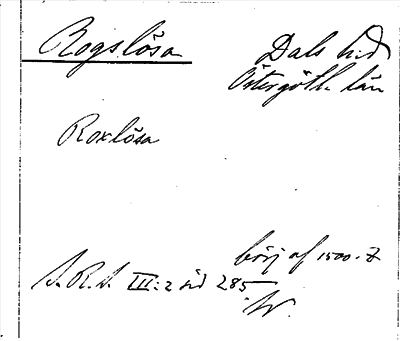 Rogslösa
Dals hd
Östergötl. län
Roxlösa
börj af 1500-t
S.R.S. III:2 sid 285
W.